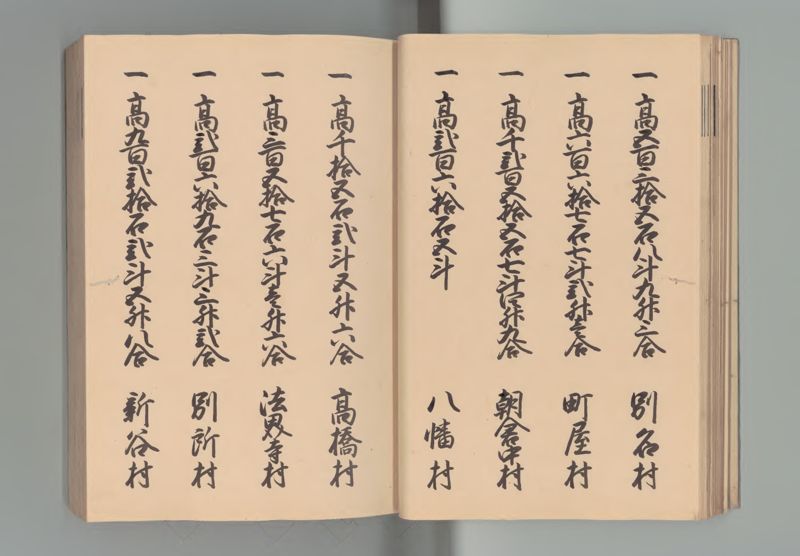 一 高五百三拾五石八斗九升三合 別名村
一 高六百六拾七石七斗弐升壱合 町屋村
一 高千弐百五拾五石七斗四升九合 朝倉中村
一 高弐百六拾石五斗 八幡村
一 高千拾五石弐斗五升六合 高橋村
一 高三百五拾七石六斗壱升六合 法界寺村
一 高弐百六拾九石三斗三升弐合 別所村
一 高九百弐拾石弐斗五升八合 新谷村